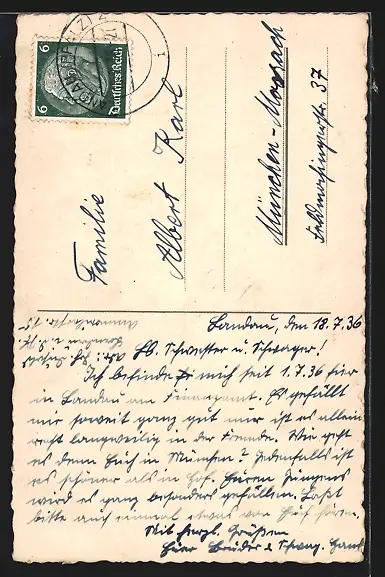 LANDAU (PFALZ) 2
6 Deutsches Reich 6
Familie
Albert Karl
München-Moosach
Feldmochingerstr. 37
Landau, den 18.7.36
Lb. Schwester u. Schwager!
Ich befinde mich seit 1.7.36 hier
in Landau am Finanzamt. Es gefällt
mir soweit ganz gut nur ist es allein
recht langweilig in der Fremde. Wie geht
es denn Euch in München? Jedenfalls ist
es schöner als in Hof. Euren Jungens
wird es ganz besonders gefallen. Laßt
bitte auch einmal etwas von Euch hören.
Mit herzl. Grüßen
Euer Bruder & Schwag. Hans
Landau i. d. Pf.